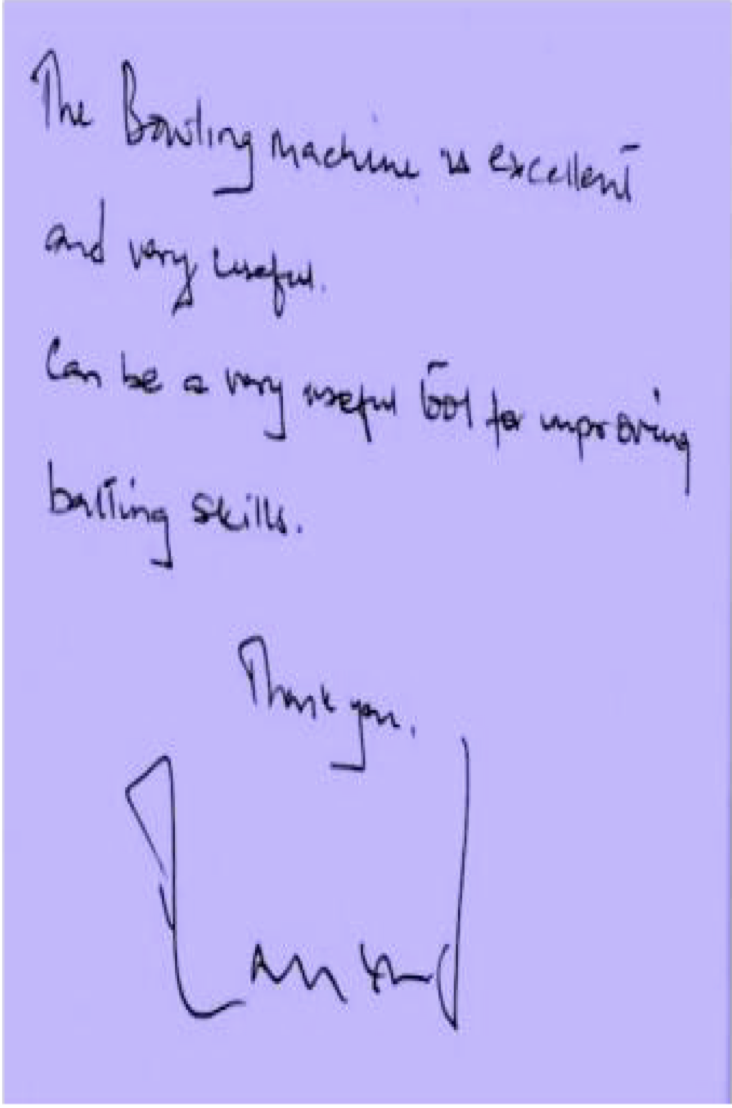 The Bowling machine is excellent
and very useful.
Can be a very useful tool for improving
batting skills.
Thank you.